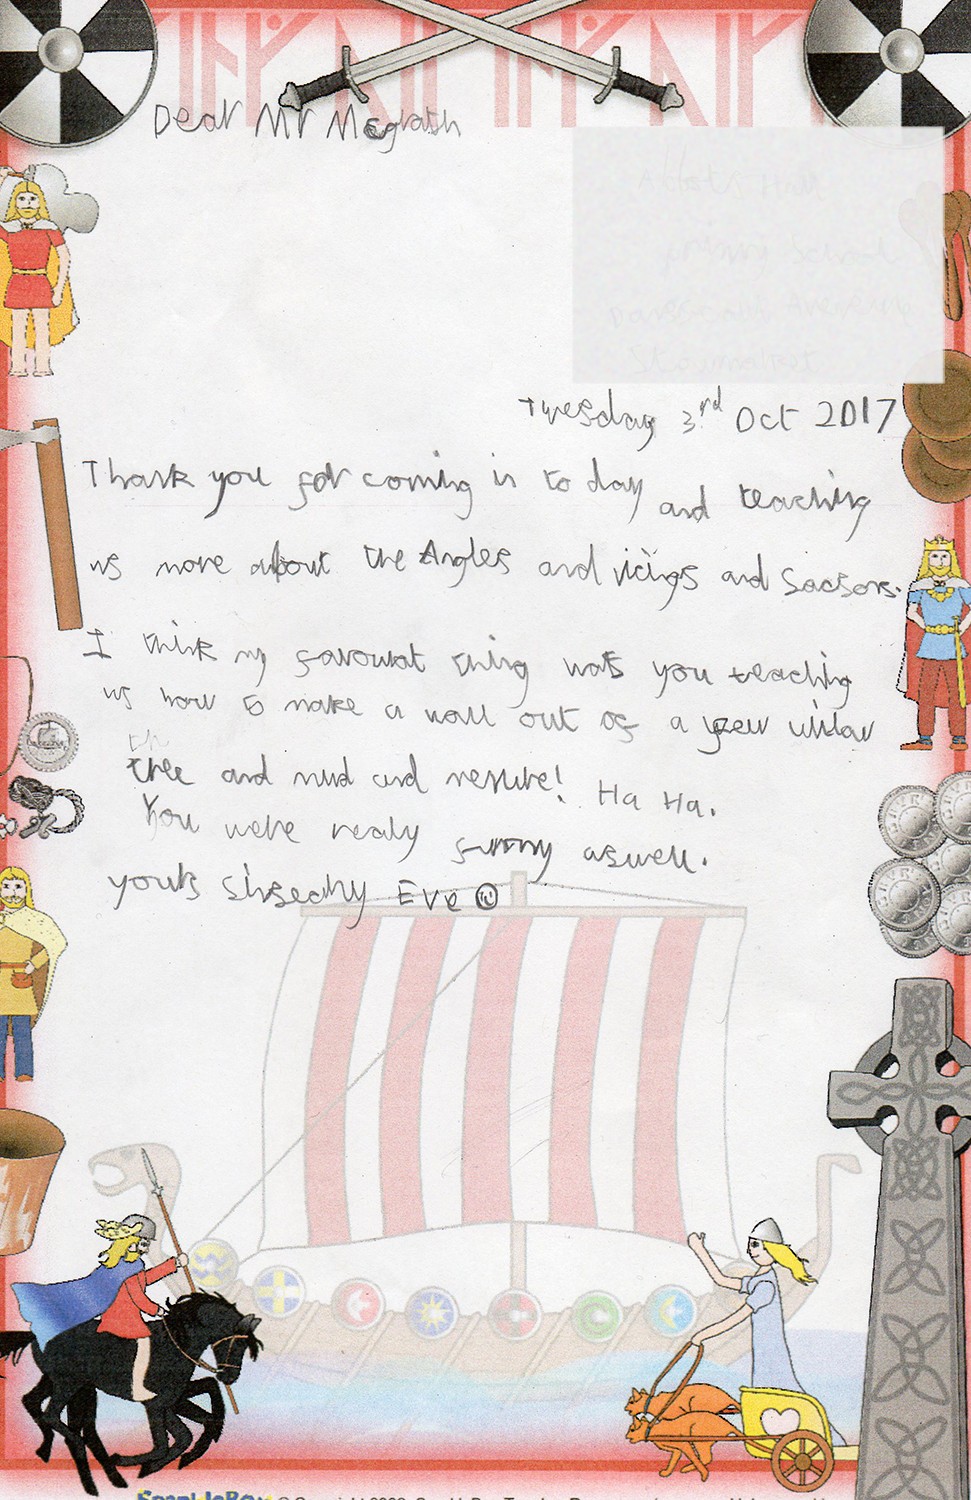 Dear Mr Mcgrath
Tuesday 3rd Oct 2017
Thank you for coming in to day and teaching
us more about the Angles and vicings and Sacsons.
I think my favourat thing was you teaching
us how to make a wall out of a yew willow
tree and mud and menure! Ha Ha.
You were realy funny aswell.
yours sinsechly Eve